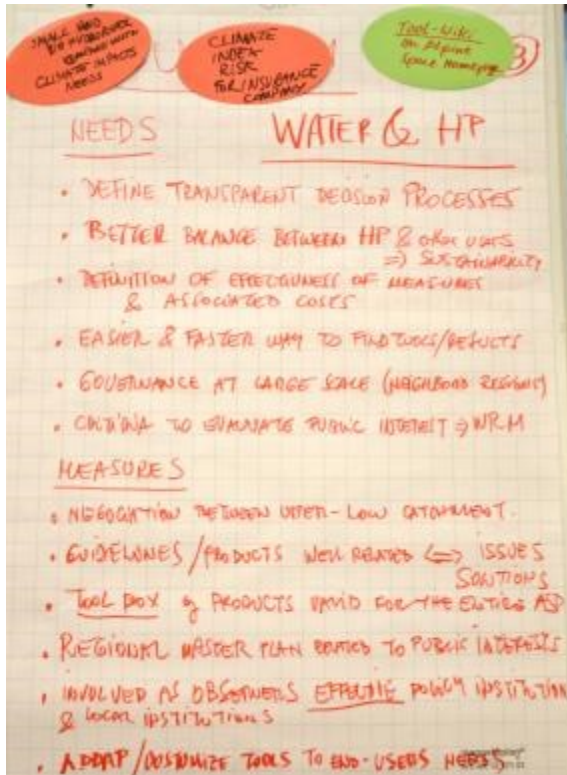 SMALL HEAD
CLIMATE IMPACTS
NEEDS
CLIMATE
INDEX
RISK
FOR INSURANCE
COMPANY
Tool-Wiki
on Alpine
Space Homepage
3
NEEDS
WATER & HP
• DEFINE TRANSPARENT DECISION PROCESSES
• BETTER BALANCE BETWEEN HP & other users
=> SUSTAINABILITY
• DEFINITION OF EFFECTIVENESS OF MEASURES
& ASSOCIATED COSTS
• EASIER & FASTER WAY TO FIND TOOLS/RESULTS
• GOVERNANCE AT LARGE SCALE (NEIGHBOUR REGIONS)
• CRITERIA TO EVALUATE PUBLIC INTEREST => WRM
MEASURES
• NEGOCIATION BETWEEN UPPER-LOW CATCHMENT.
• GUIDELINES/PRODUCTS WELL RELATED <=> ISSUES
SOLUTIONS
• TOOL BOX of PRODUCTS VALID FOR THE ENTIRE ASP
• REGIONAL MASTER PLAN RELATED TO PUBLIC INTERESTS
• INVOLVED AS OBSERVERS EFFECTIVE POLICY INSTITUTION
& LOCAL INSTITUTIONS
• ADDAP/CUSTOMIZE TOOLS TO END-USERS NEEDS